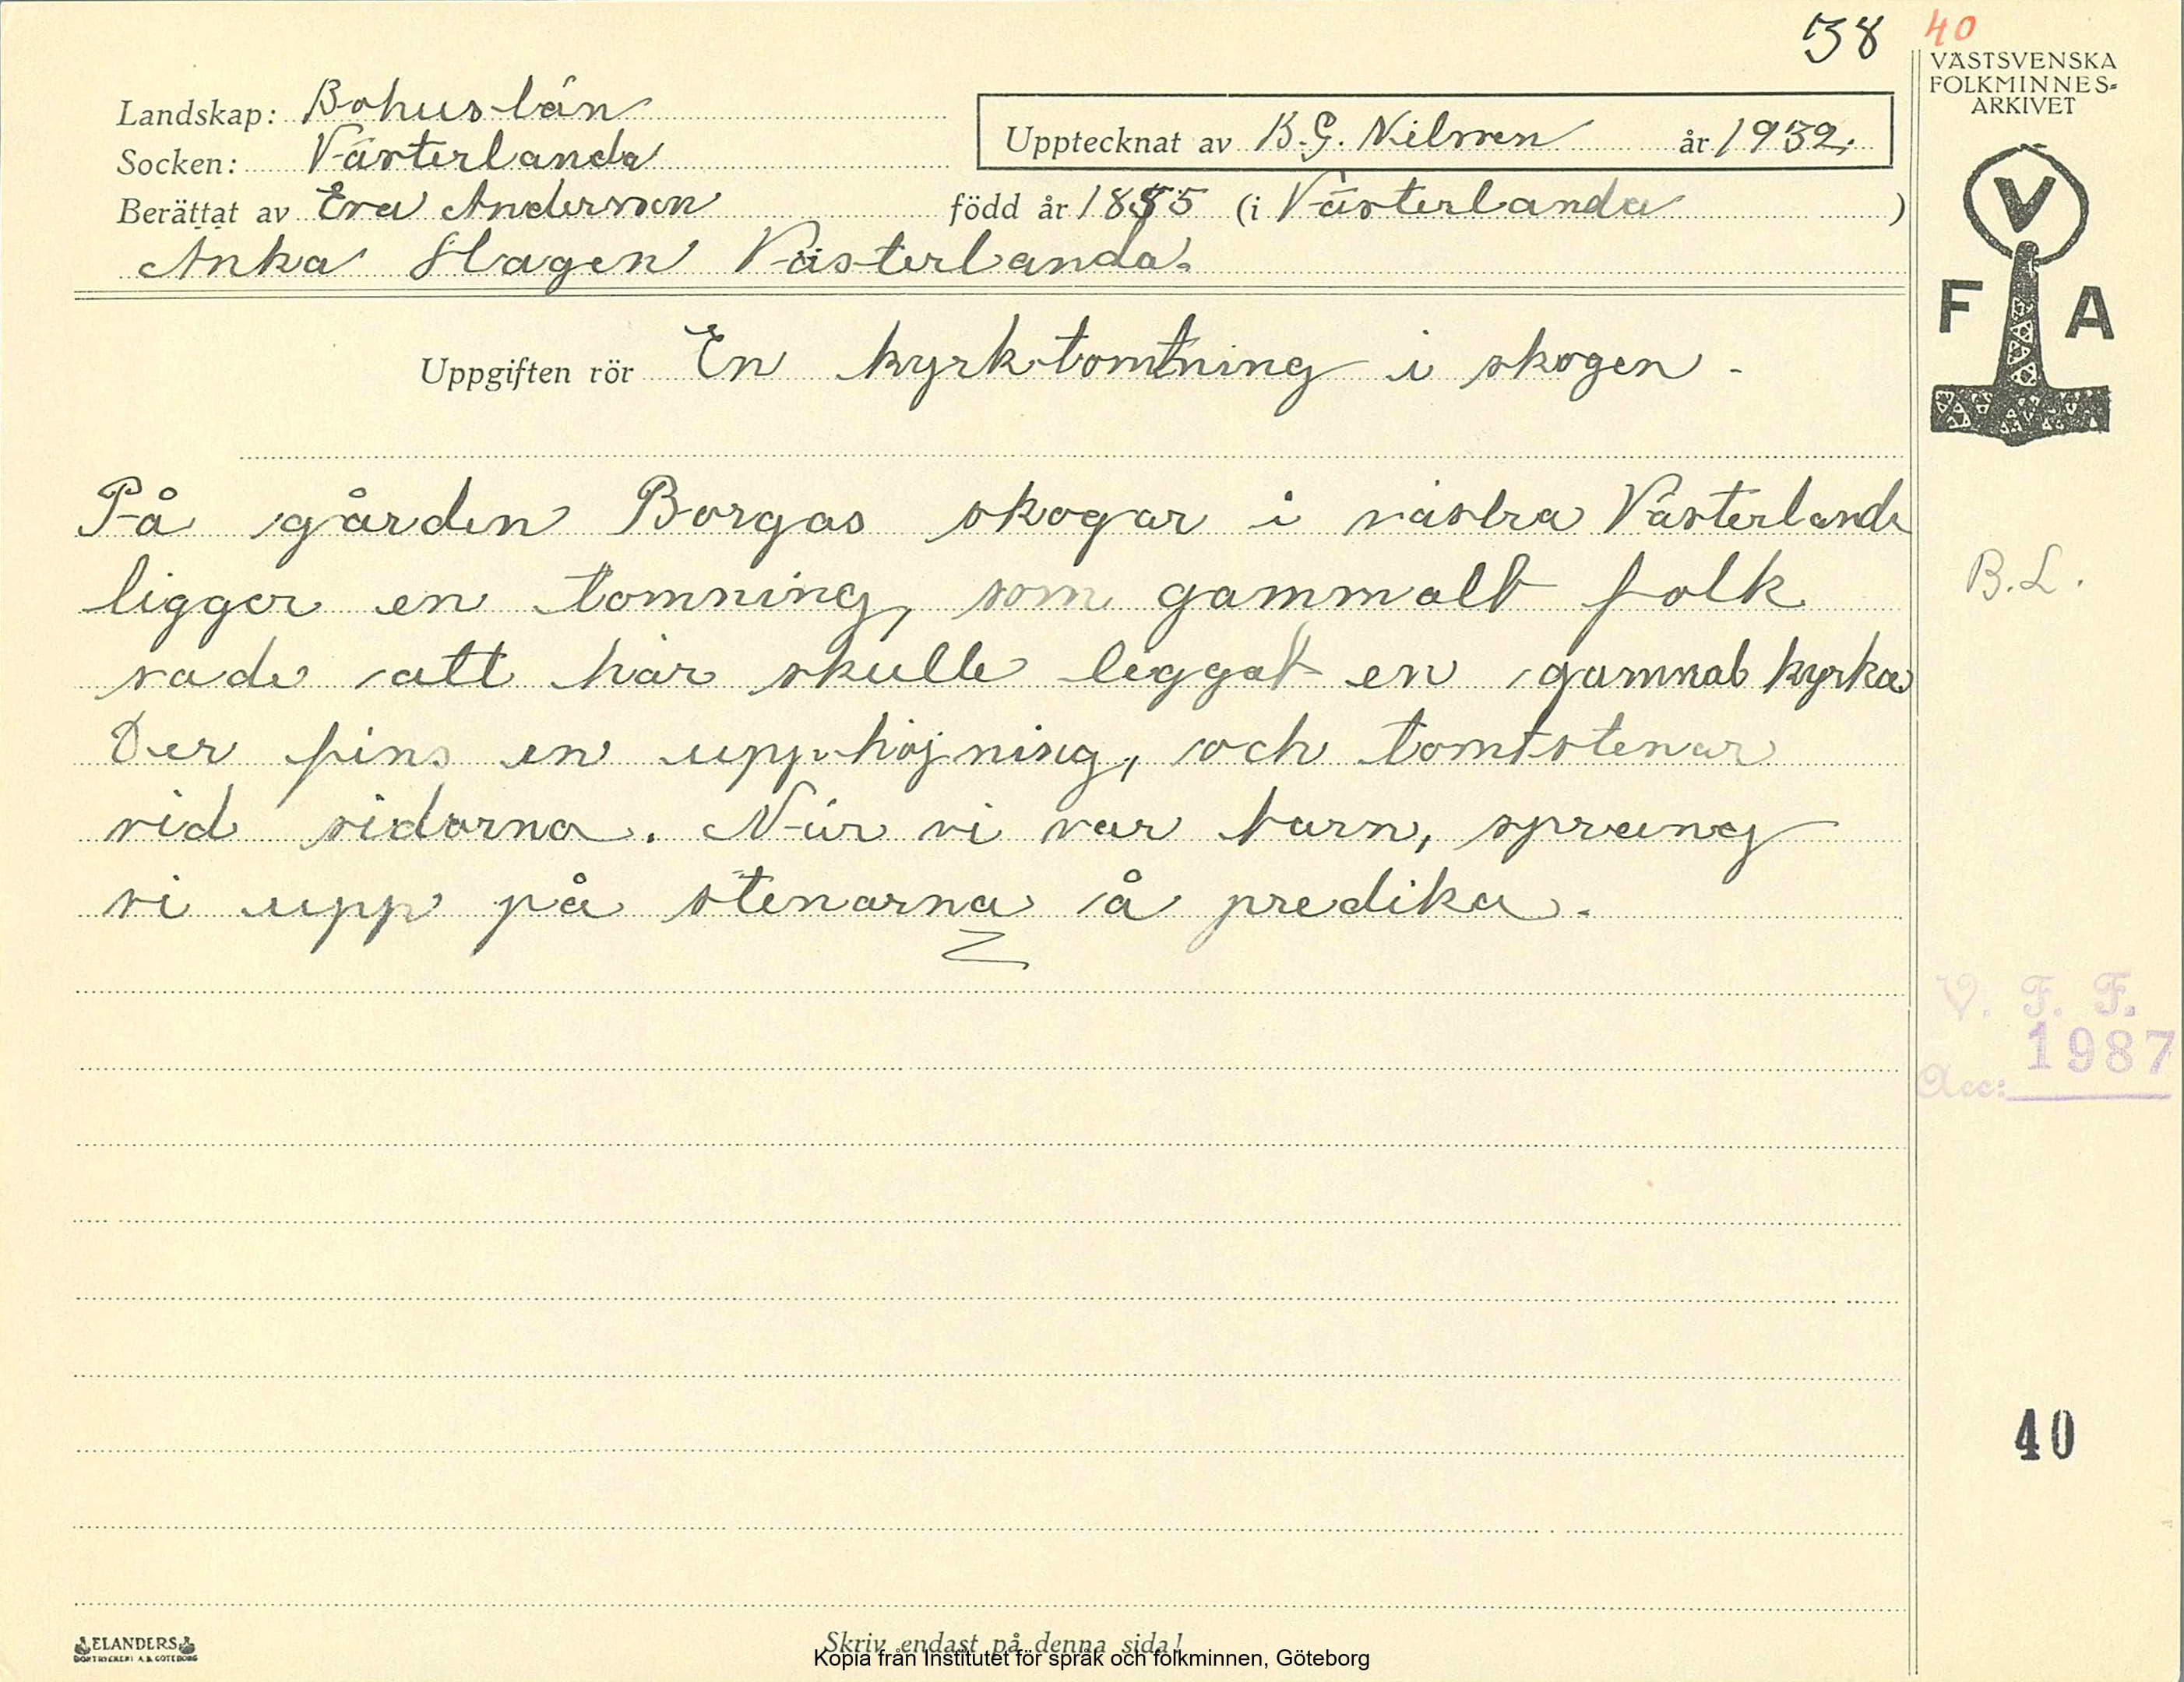 38 40
VÄSTSVENSKA
FOLKMINNES-
ARKIVET
Landskap: Bohuslän
Socken: Västerlanda
Upptecknat av B.G. Nilsson år 1932.
Berättat av Eva Andersson född år 1855 (i Västerlanda)
Anka Hagen Västerlanda.
V
F A
Uppgiften rör En kyrktomtning i skogen.
På gården Borgas skogar i västra Västerlanda
ligger en tomning, som gammalt folk
sade att här skulle leggat en gammal kyrka
Der fins en upphöjning, och tomtstenar
vid sidorna. När vi var barn, sprang
vi upp på stenarna å predika.
B.L.
V. F. F.
1987
Acc:
40
ELANDERS
BOKTRYCKERI A.B. GÖTEBORG
Skriv endast på denna sida!
Kopia från Institutet för språk och folkminnen, Göteborg